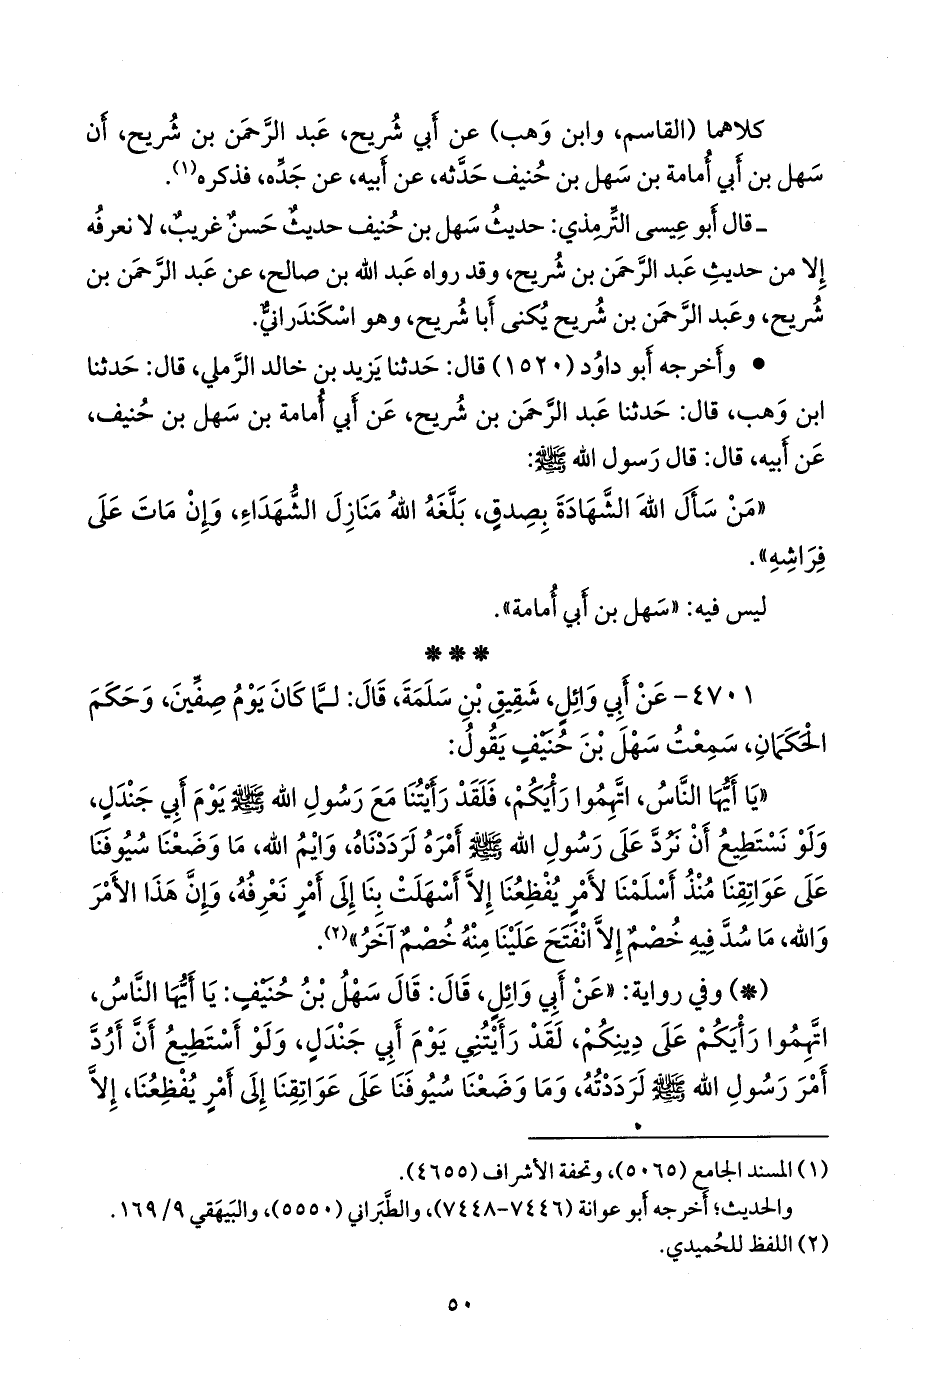 كلاهما (القاسم، وابن وَهب) عن أَبي شُريح، عَبد الرَّحمَن بن شُريح، أَن
سَهل بن أَبي أُمامة بن سَهل بن حُنيف حَدَّثه، عن أَبيه، عن جَدِّه، فذكره(١).
ـ قال أَبو عِيسى التِّرمِذي: حديثُ سَهل بن حُنيف حديثٌ حَسنٌ غريبٌ، لا نعرفُه
إِلا من حديثِ عَبد الرَّحمَن بن شُريح، وقد رواه عَبد الله بن صالح، عن عَبد الرَّحمَن بن
شُريح، وعَبد الرَّحمَن بن شُريح يُكنى أَبا شُريح، وهو اسْكَندَرانيٌّ.
• وأَخرجه أَبو داوُد (١٥٢٠) قال: حَدثنا يَزيد بن خالد الرَّملي، قال: حَدثنا
ابن وَهب، قال: حَدثنا عَبد الرَّحمَن بن شُريح، عَن أَبي أُمامة بن سَهل بن حُنيف،
عَن أَبيه، قال: قال رَسول الله ﷺ:
«مَنْ سَأَلَ اللهَ الشَّهَادَةَ بِصِدقٍ، بَلَّغَهُ اللهُ مَنَازِلَ الشُّهَدَاءِ، وَإِنْ مَاتَ عَلَى
فِرَاشِهِ».
ليس فيه: «سَهل بن أَبي أُمامة».
* * *
٤٧٠١- عَنْ أَبِي وَائِلٍ، شَقِيقِ بْنِ سَلَمَةَ، قَالَ: لَمَّا كَانَ يَوْمُ صِفِّينَ، وَحَكَمَ
الْحَكَمَانِ، سَمِعْتُ سَهْلَ بْنَ حُنَيْفٍ يَقُولُ:
«يَا أَيُّهَا النَّاسُ، اتَّهِمُوا رَأْيَكُمْ، فَلَقَدْ رَأَيْتُنَا مَعَ رَسُولِ الله ﷺ يَوْمَ أَبِي جَنْدَلٍ،
وَلَوْ نَسْتَطِيعُ أَنْ نَرُدَّ عَلَى رَسُولِ الله ﷺ أَمْرَهُ لَرَدَدْنَاهُ، وَايْمُ الله، مَا وَضَعْنَا سُيُوفَنَا
عَلَى عَوَاتِقِنَا مُنْذُ أَسْلَمْنَا لأَمْرٍ يُفْظِعُنَا إِلاَّ أَسْهَلَتْ بِنَا إِلَى أَمْرٍ نَعْرِفُهُ، وَإِنَّ هَذَا الأَمْرَ
وَالله، مَا سُدَّ فِيهِ خُصْمٌ إِلاَّ انْفَتَحَ عَلَيْنَا مِنْهُ خُصْمٌ آخَرُ»(٢).
(*) وفي رواية: «عَنْ أَبِي وَائِلٍ، قَالَ: قَالَ سَهْلُ بْنُ حُنَيْفٍ: يَا أَيُّهَا النَّاسُ،
اتَّهِمُوا رَأْيَكُمْ عَلَى دِينِكُمْ، لَقَدْ رَأَيْتُنِي يَوْمَ أَبِي جَنْدَلٍ، وَلَوْ أَسْتَطِيعُ أَنَّ أَرُدَّ
أَمْرَ رَسُولِ الله ﷺ لَرَدَدْتُهُ، وَمَا وَضَعْنَا سُيُوفَنَا عَلَى عَوَاتِقِنَا إِلَى أَمْرٍ يُفْظِعُنَا، إِلاَّ
(١) المسند الجامع (٥٠٦٥)، وتحفة الأشراف (٤٦٥٥).
والحديث؛ أَخرجه أَبو عوانة (٧٤٤٦-٧٤٤٨)، والطَّبَراني (٥٥٥٠)، والبَيهَقي ٩/ ١٦٩.
(٢) اللفظ للحُميدي.
٥٠